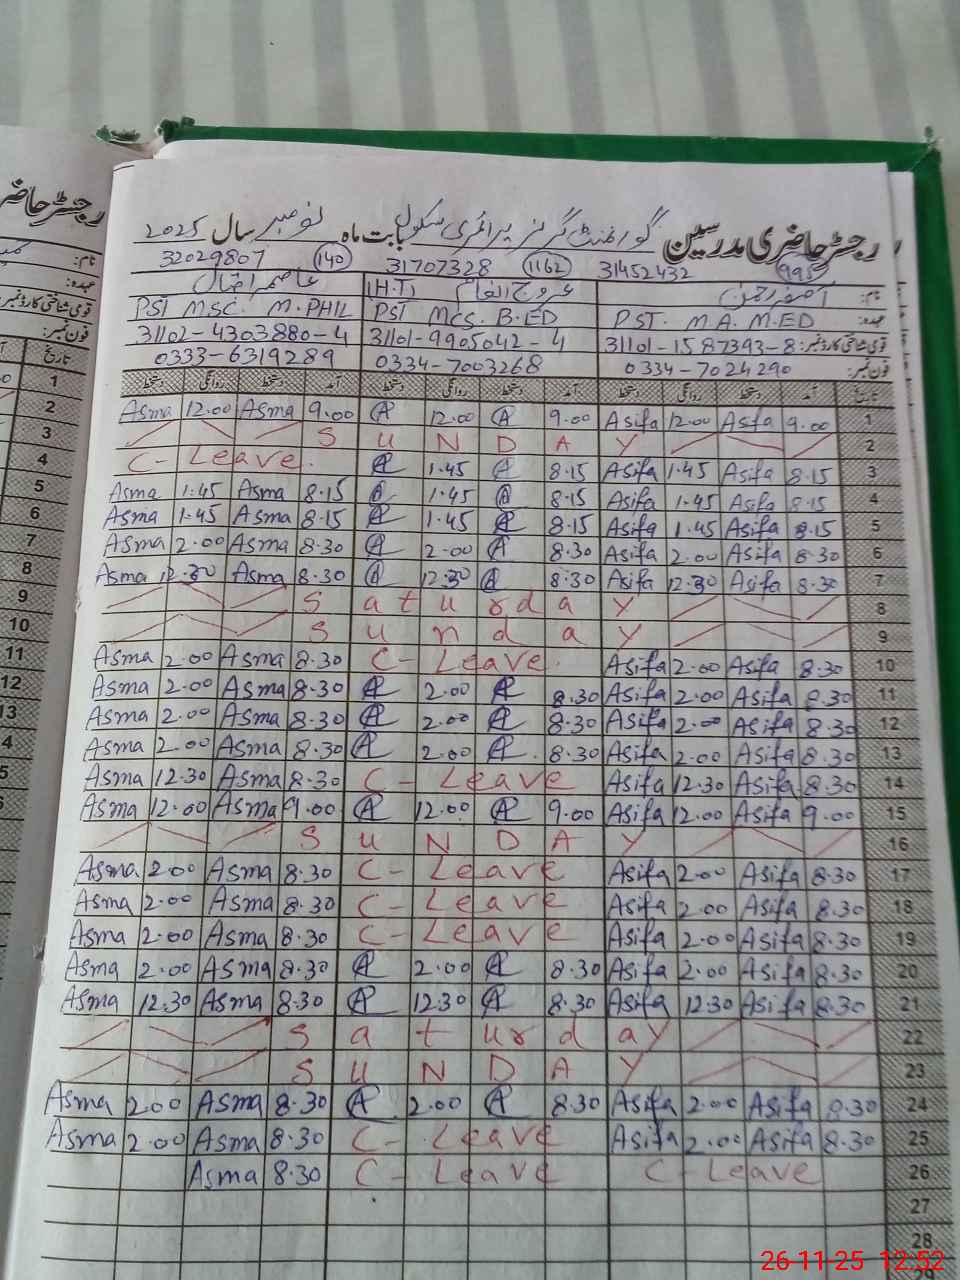 رجسٹر حاضری مدرسین گورنمنٹ گرلز پرائمری سکول بابت ماہ نومبر سال 2025
995 31452432 1162 31707328 140 32029807
نام: آصفہ رحمن عروج انعام (H.T) عاصمہ
عہدہ: PST. M.A. M.ED PST MCS. B.ED PST MSC. M.PHIL
قومی شناختی کارڈ نمبر: 31101-1587393-8 31101-9905042-4 31102-4303880-4
فون نمبر: 0334-7024290 0334-7003268 0333-6319289
تاریخ آمد دستخط روانگی دستخط آمد دستخط روانگی دستخط آمد دستخط روانگی دستخط
Asma 12.00 Asma 9.00 12.00 9.00 Asifa 12.00 Asifa 9.00 1
SUNDAY 2
C-Leave. 1.45 8.15 Asifa 1.45 Asifa 8.15 3
Asma 1.45 Asma 8.15 1.45 8.15 Asifa 1.45 Asifa 8.15 4
Asma 1.45 Asma 8.15 1.45 8.15 Asifa 1.45 Asifa 8.15 5
Asma 2.00 Asma 8.30 2.00 8.30 Asifa 2.00 Asifa 8.30 6
Asma 12.30 Asma 8.30 12.30 8.30 Asifa 12.30 Asifa 8.30 7
Saturday 8
Sunday 9
Asma 2.00 Asma 8.30 C-Leave. Asifa 2.00 Asifa 8.30 10
Asma 2.00 Asma 8.30 2.00 8.30 Asifa 2.00 Asifa 8.30 11
Asma 2.00 Asma 8.30 2.00 8.30 Asifa 2.00 Asifa 8.30 12
Asma 2.00 Asma 8.30 2.00 8.30 Asifa 2.00 Asifa 8.30 13
Asma 12.30 Asma 8.30 C-Leave Asifa 12.30 Asifa 8.30 14
Asma 12.00 Asma 9.00 12.00 9.00 Asifa 12.00 Asifa 9.00 15
SUNDAY 16
Asma 2.00 Asma 8.30 C-Leave Asifa 2.00 Asifa 8.30 17
Asma 2.00 Asma 8.30 C-Leave Asifa 2.00 Asifa 8.30 18
Asma 2.00 Asma 8.30 C-Leave Asifa 2.00 Asifa 8.30 19
Asma 2.00 Asma 8.30 2.00 8.30 Asifa 2.00 Asifa 8.30 20
Asma 12.30 Asma 8.30 12.30 8.30 Asifa 12.30 Asifa 8.30 21
Saturday 22
SUNDAY 23
Asma 2.00 Asma 8.30 2.00 8.30 Asifa 2.00 Asifa 8.30 24
Asma 2.00 Asma 8.30 C-Leave Asifa 2.00 Asifa 8.30 25
Asma 8.30 C-Leave C-Leave 26
27
28
29
رجسٹر حاضر
نام:
عہدہ:
قومی شناختی کارڈ نمبر:
فون نمبر:
تاریخ
1
2
3
4
5
6
7
8
9
10
11
12
13
26-11-25 12:52